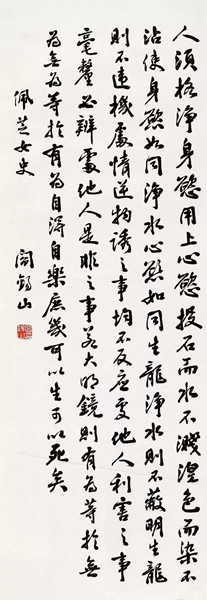 人须格净身慾用上心慾投石而水不溅湟色而染不
沾使身慾如同净水心慾如同生龍净水則不蔽明生龍
則不違機處情逆物誘之事均不反应處他人利害之事
毫釐必辨處他人是非之事若大明鏡則有為等於無
為無為等於有為自淂自樂庶幾可以生可以死矣
佩芝女史
閻錫山